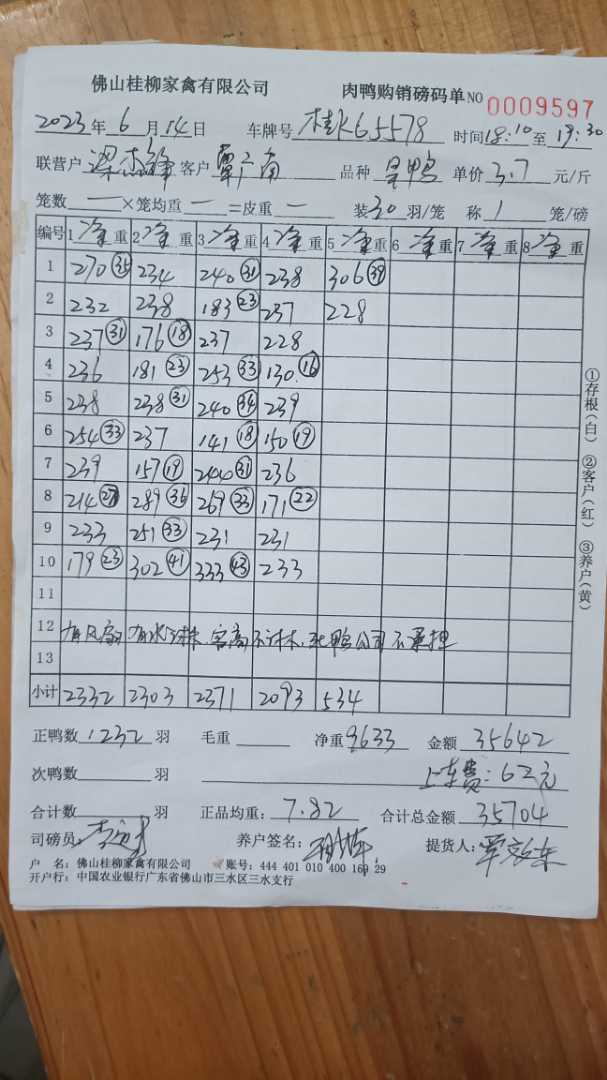 佛山桂柳家禽有限公司 肉鸭购销磅码单 NO 0009597
2023年6月14日 车牌号 桂K65578 时间18:10至19:30
联营户 梁 客户 覃广南 品种 鸭 单价3.7元/斤
笼数 — ×笼均重 — =皮重 — 装30羽/笼 称1笼/磅
编号 1净重 2净重 3净重 4净重 5净重 6净重 7净重 8净重
1 270 234 240(31) 238 306(39)
2 232 238 183(23) 237 228
3 237(31) 176(18) 237 228
4 236 181(23) 253(33) 130(16)
5 238 238(31) 240(34) 239
6 254(33) 237 141(18) 150(19)
7 239 157(19) 244(31) 236
8 214(27) 289(36) 269(33) 171(22)
9 233 251(33) 231 231
10 179(23) 302(41) 333(43) 233
11
12 有风扇 有水 死鸭公司不承担
13
小计 2332 2303 2371 2093 534
正鸭数 1232 羽 毛重 净重9633 金额 35642
次鸭数 羽 上车费:62元
合计数 羽 正品均重:7.82 合计总金额 35704
司磅员: 养户签名: 提货人:覃
户 名:佛山桂柳家禽有限公司 账号:444 401 010 400 169 29
开户行:中国农业银行广东省佛山市三水区三水支行
①存根(白) ②客户(红) ③养户(黄)